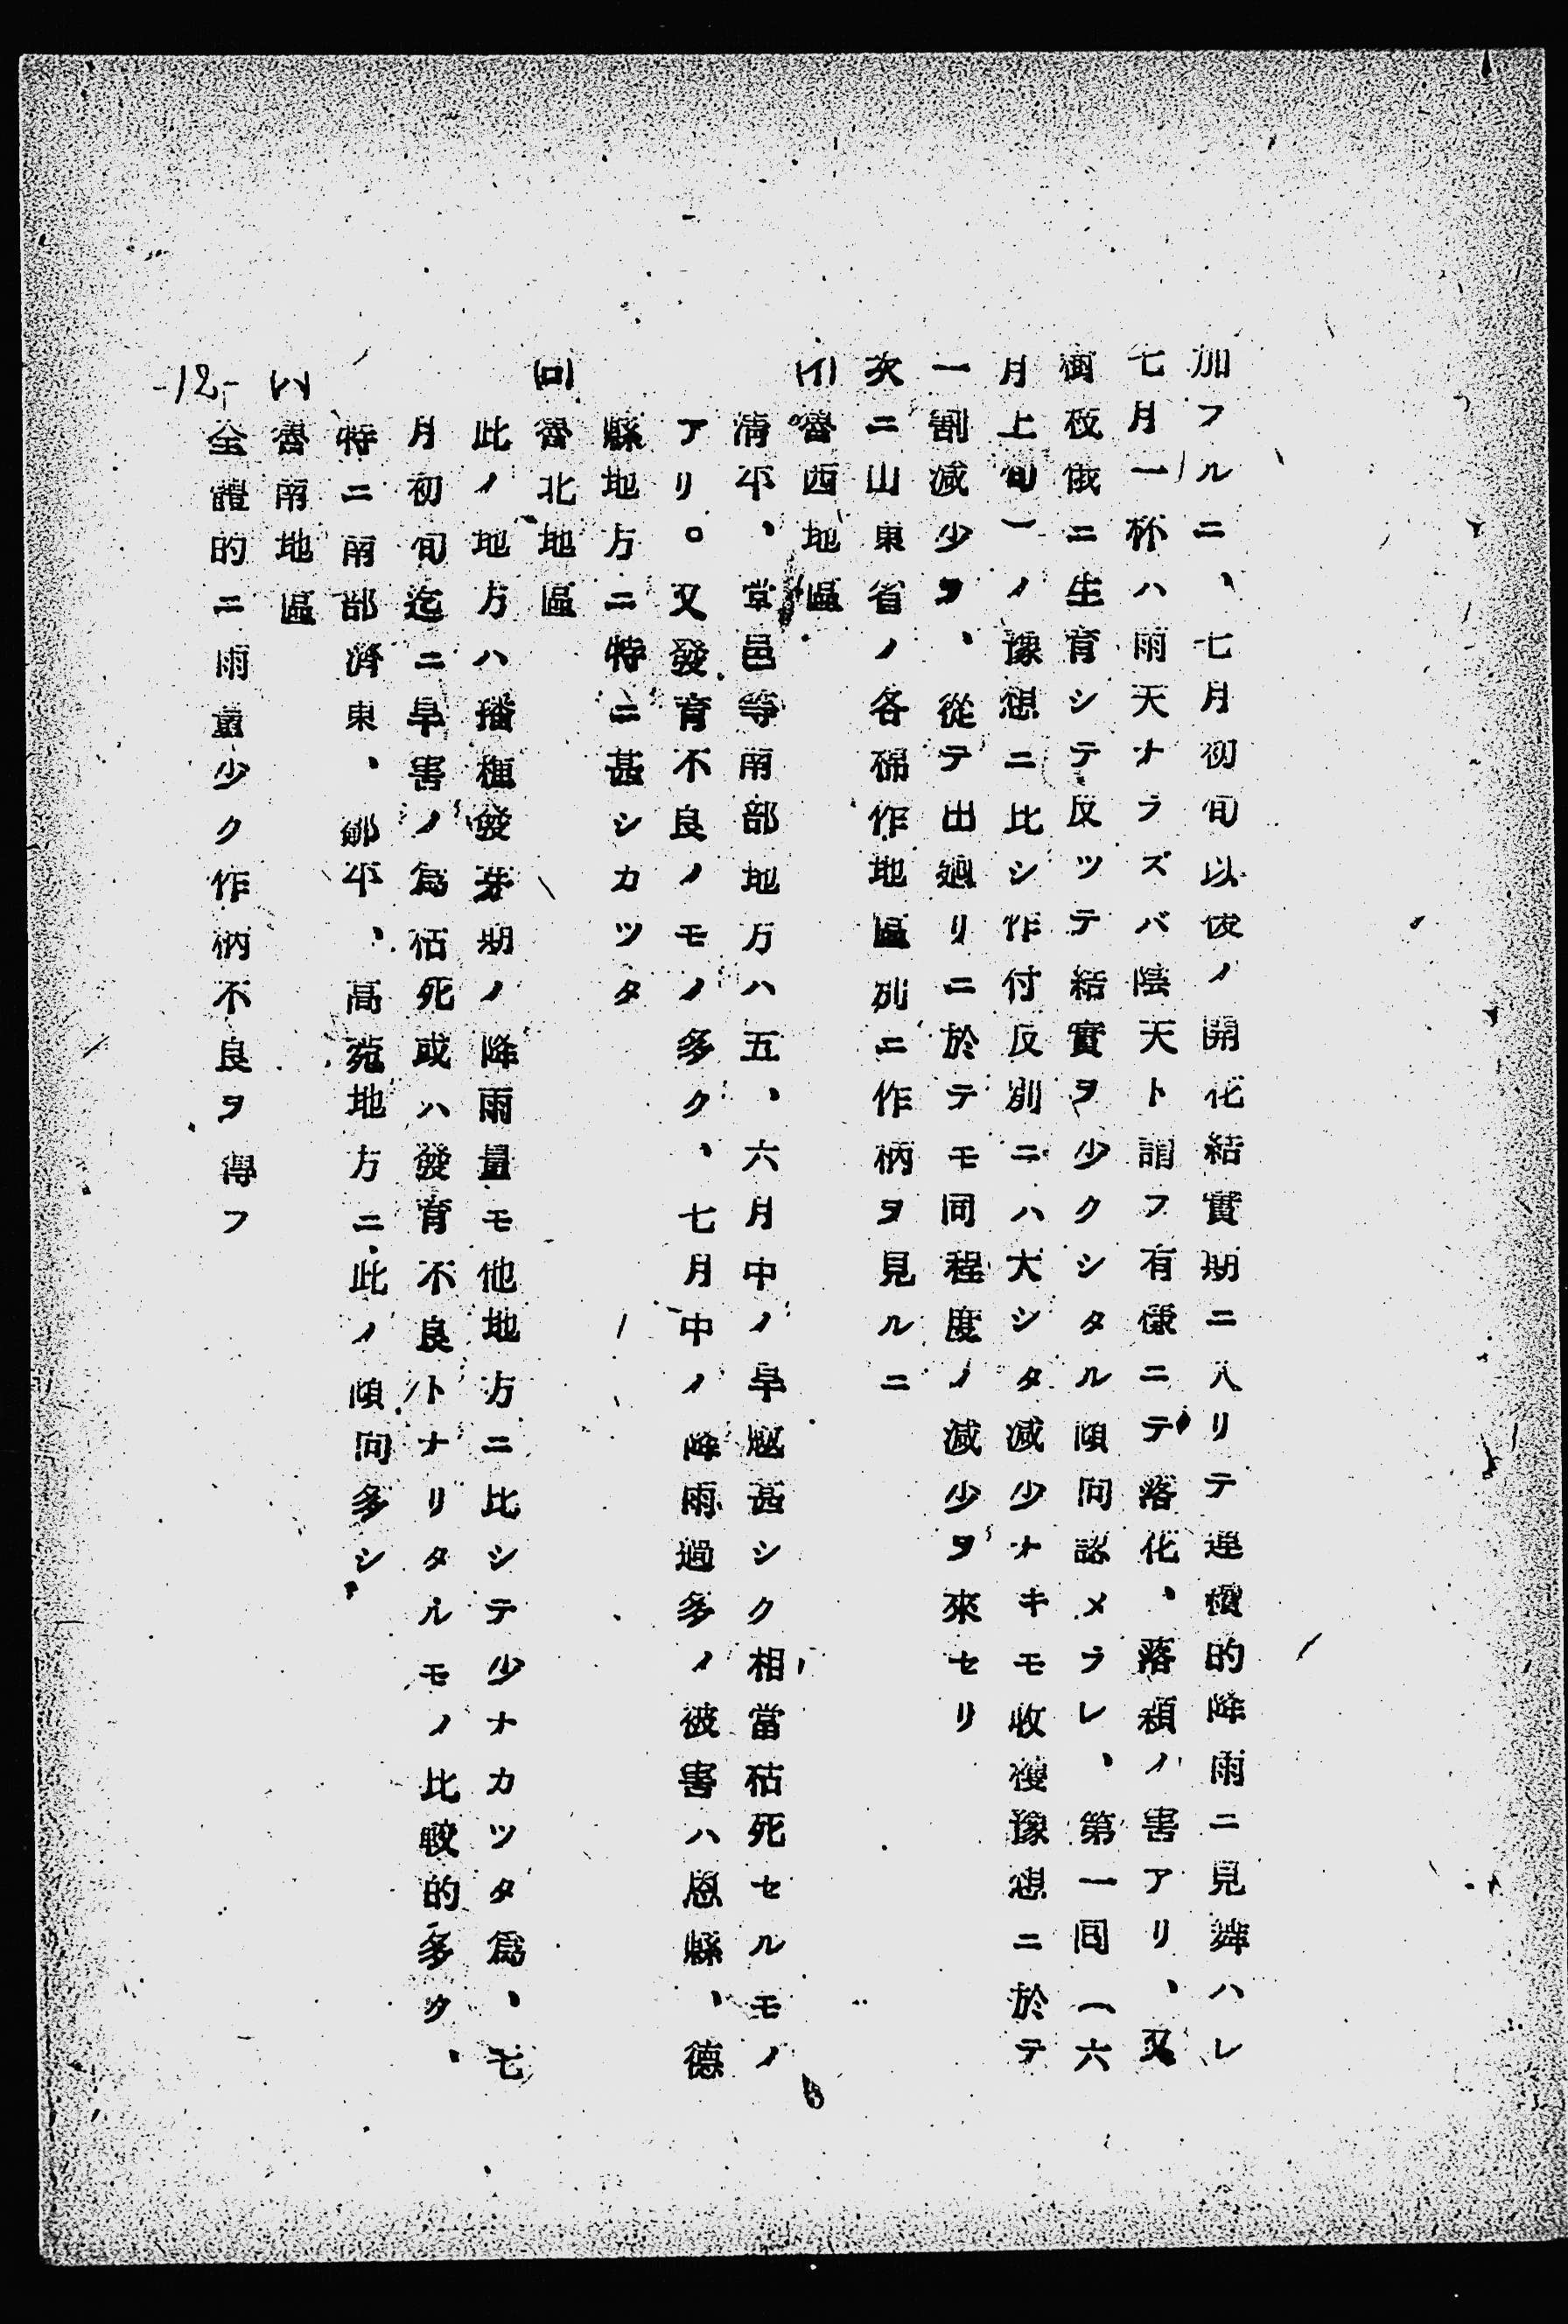 加フルニ、七月初旬以後ノ開花結實期ニ入リテ連續的降雨ニ見舞ハレ
七月一杯ハ雨天ナラズバ陰天ト謂フ有樣ニテ落花、落顆ノ害アリ、又
樹枝俄ニ生育シテ反ツテ結實ヲ少クシタル傾向認メラレ、第一回(六
月上旬)ノ豫想ニ比シ作付反別ニハ大シタ減少ナキモ收穫豫想ニ於テ
一割減少ヲ、從テ出廻リニ於テモ同程度ノ減少ヲ來セリ
次ニ山東省ノ各棉作地區別ニ作柄ヲ見ルニ
(イ)魯西地區
淸平、堂邑等南部地方ハ五、六月中ノ旱魃甚シク相當枯死セルモノ
アリ。又發育不良ノモノ多ク、七月中ノ降雨過多ノ被害ハ恩縣、德
縣地方ニ特ニ甚シカツタ
(ロ)魯北地區
此ノ地方ハ播種發芽期ノ降雨量モ他地方ニ比シテ少ナカツタ爲、七
月初旬迄ニ旱害ノ爲枯死或ハ發育不良トナリタルモノ比較的多ク、
特ニ南部濟東、鄒平、高苑地方ニ此ノ傾向多シ
(ハ)魯南地區
全體的ニ雨量少ク作柄不良ヲ得フ
-12-